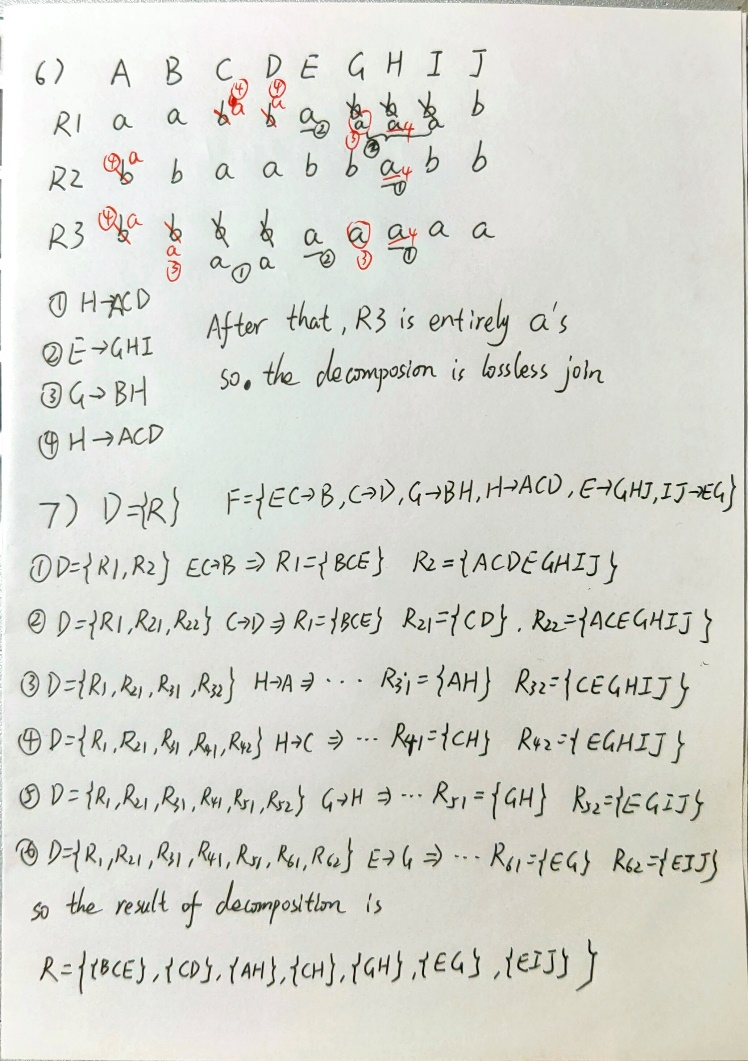 6) A B C D E G H I J
R1 a a b a b a a b a b a b a b
R2 b a b a a b b a b b
R3 b a b a b a b a a a a a a
① H→ACD
② E→GHI
③ G→BH
④ H→ACD
After that, R3 is entirely a's
so. the decomposion is lossless join
7) D={R} F={EC→B, C→D, G→BH, H→ACD, E→GHI, IJ→EG}
① D={R1, R2} EC→B ⇒ R1={BCE} R2={ACDEGHIJ}
② D={R1, R21, R22} C→D ⇒ R1={BCE} R21={CD}. R22={ACEGHIJ}
③ D={R1, R21, R31, R32} H→A ⇒ ... R31={AH} R32={CEGHIJ}
④ D={R1, R21, R31, R41, R42} H→C ⇒ ... R41={CH} R42={EGHIJ}
⑤ D={R1, R21, R31, R41, R51, R52} G→H ⇒ ... R51={GH} R52={EGIJ}
⑥ D={R1, R21, R31, R41, R51, R61, R62} E→G ⇒ ... R61={EG} R62={EIJ}
so the result of decomposition is
R={{BCE}, {CD}, {AH}, {CH}, {GH}, {EG}, {EIJ}}